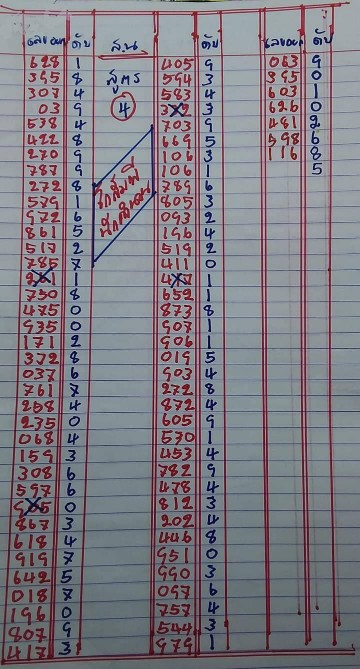 เลขออก ดับ สน เลขออก ดับ
628 1 สูตร 405 9 063 9
395 8 4 594 3 395 0
307 4 583 4 603 1
03 9 3 626 0
538 4 703 9 481 2
422 8 669 5 598 6
270 9 106 3 116 8
787 9 106 1 5
272 8 789 6
579 1 805 3
972 6 093 2
861 5 196 4
517 2 519 2
785 7 411 0
1 1
750 8 652 1
475 0 873 8
935 0 907 1
171 2 906 1
372 8 019 5
037 6 903 4
761 7 272 8
258 4 872 4
235 0 605 9
068 4 570 1
159 3 453 4
308 6 782 9
597 6 478 4
0 812 3
867 3 202 4
618 4 446 8
919 7 951 0
642 5 990 3
018 7 097 6
196 0 757 4
807 9 544 3
417 3 979 1